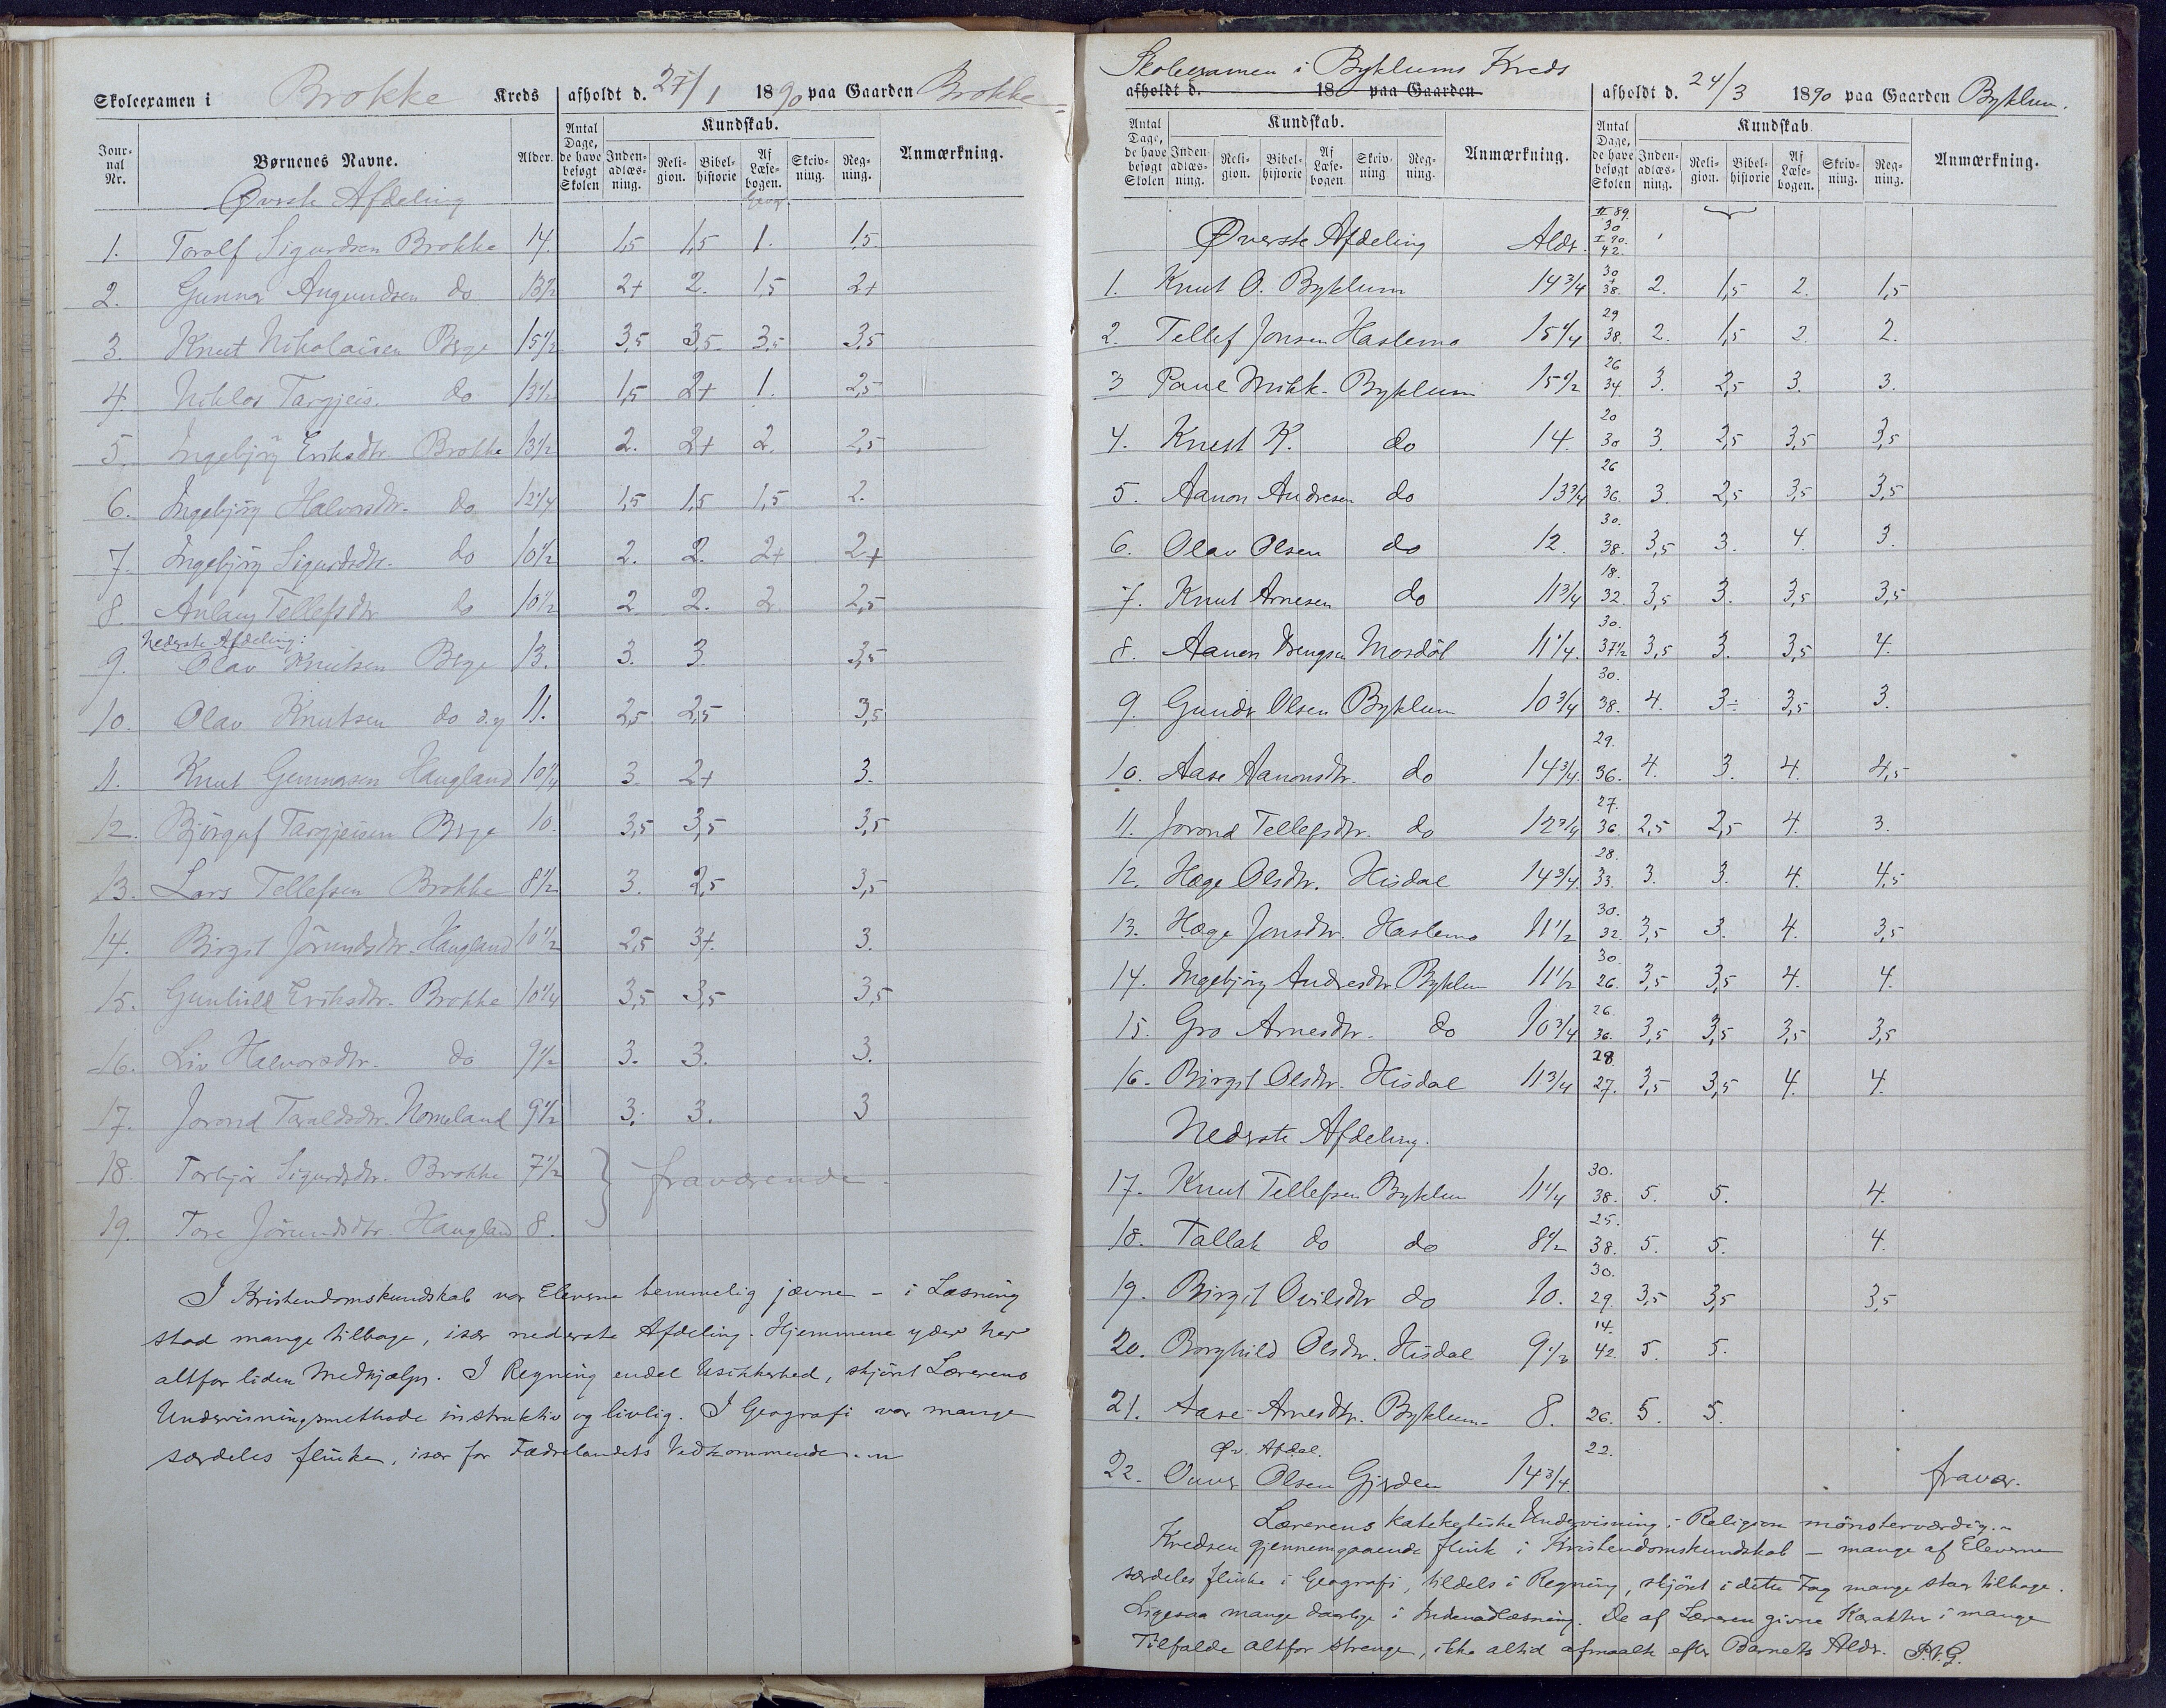 Skoleexamen i Brokke Kreds afholdt d. 27/1 1890 paa Gaarden Brokke
Jour-nal Nr. Børnenes Navne. Alder. Antal Dage, de have besøgt Skolen Kundskab. Inden-adlæs-ning. Reli-gion. Bibel-historie Af Læse-bogen. Skriv-ning. Reg-ning. Anmærkning.
Øverste Afdeling Geog.
1. Torolf Sigurdsen Brokke 14. 1,5 1,5 1. 1,5
2. Gunnar Angundsen do 13 1/2 2+ 2. 1,5 2+
3. Knut Nikolaisen Berge 15 1/2 3,5 3,5 3,5 3,5
4. Niklos Targjeis. do 13 1/2 1,5 2+ 1. 2,5
5. Ingebjörg Eriksdtr. Brokke 13 1/2 2. 2+ 2. 2,5
6. Ingebjörg Halvorsdtr. do 12 1/4 1,5 1,5 1,5 2.
7. Ingebjörg Sigurdsdtr. do 10 1/2 2. 2. 2+ 2+
8. Aslaug Tellefsdtr do 10 1/2 2 2. 2 2,5
Nederste Afdeling:
9. Olav Knutsen Berge 13. 3. 3. 3,5
10. Olav Knutsen do d.y 11. 2,5 2,5 3,5
11. Knut Gunnarsen Haugland 10 1/4 3. 2+ 3.
12. Björguf Targjeisen Berge 10. 3,5 3,5 3,5
13. Lars Tellefsen Brokke 8 1/2 3. 2,5 3,5
14. Birgit Jörundsdtr. Haugland 10 1/2 2,5 3+. 3.
15. Gunhild Eriksdtr. Brokke 10 1/4 3,5 3,5 3,5
16. Liv Halvorsdtr. do 9 1/2 3. 3. 3.
17. Jorond Taraldsdtr. Nomeland 9 1/2 3. 3. 3
18. Torbjör Sigurdsdtr. Brokke 7 1/2 } fraværende.
19. Tore Jörundsdtr. Haugland 8.
I Kristendomskundskab var Eleverne temmelig jævne – i Læsning
stod mange tilbage, især nederste Afdeling. Hjemmene yder her
altfor liden Medhjælp. I Regning endel Usikkerhed, skjönt Lærerens
Undervisningsmethode instruktiv og livlig. I Geografi var mange
særdeles flinke, især for Fædrelandets Vedkommende.
Skoleexamen i Byklums Kreds
afholdt d. 18 paa Gaarden afholdt d. 24/3 1890 paa Gaarden Byklum.
Antal Dage, de have besøgt Skolen Kundskab. Inden-adlæs-ning. Reli-gion. Bibel-historie Af Læse-bogen. Skriv-ning Reg-ning. Anmærkning. Antal Dage, de have besøgt Skolen Kundskab. Inden-adlæs-ning. Reli-gion. Bibel-historie Af Læse-bogen. Skriv-ning. Reg-ning. Anmærkning.
Øverste Afdeling Aldr. II 89. 30 I 90. 42.
1. Knut O. Byklum 14 3/4 30 + 38. 2. 1,5 2. 1,5
2. Tellef Jonsen Haslemo 15 1/4 29 38. 2. 1,5 2. 2.
3 Paul Mikk. Byklum 15 1/2 26 34. 3. 2,5 3. 3.
4. Knut K. do 14. 20 30 3. 2,5 3,5 3,5
5. Aanon Andresen do 13 3/4 26 36. 3. 2,5 3,5 3,5
6. Olav Olsen do 12. 30. 38. 3,5 3. 4. 3.
7. Knut Arnesen do 11 3/4 18. 32. 3,5 3. 3,5 3,5
8. Aanon Drengsn Mosdöl 11 1/4. 30. 37 1/2 3,5 3. 3,5 4.
9. Gundr Olsen Byklum 10 3/4 30. 38. 4. 3÷ 3,5 3.
10. Aase Aanonsdtr. do 14 3/4. 29. 36. 4. 3. 4. 4,5
11. Jorond Tellefsdtr. do 12 3/4 27. 36. 2,5 2,5 4. 3.
12. Hæge Olsdtr. Hisdal 14 3/4. 28. 33. 3. 3. 4. 4,5
13. Hæge Jonsdtr. Haslemo 11 1/2 30. 32. 3,5 3. 4. 3,5
14. Ingebjörg Andresdtr Byklum 11 1/2 30. 26. 3,5 3,5 4. 4.
15. Gro Arnesdtr. do 10 3/4 26. 36. 3,5 3,5 3,5 3,5
16. Birgit Olsdtr. Hisdal 11 3/4 28. 27. 3,5 3,5 4. 4.
Nederste Afdeling.
17. Knut Tellefsen Byklum 11 1/4 30. 38. 5. 5. 4.
18. Tallak do do 8 1/2 25. 38. 5. 5. 4.
19. Birgit do 10. 30. 29. 3,5 3,5 3,5
20. Borghild Olsdtr. Hisdal 9 1/2 14. 42. 5. 5.
21. Aase Arnesdtr. Byklum. 8. 26. 5. 5.
Øv. Afdel. 22.
22. Ouver Olsen Gjerden 14 3/4. fravær.
Lærerens katekestiske Undervisning i Religion mönsterværdig.
Kredsen gjennemgaaende flink i Kristendomskundskab – mange af Eleverne
særdeles flinke i Geografi, tildels i Regning, skjönt i dette Fag mange staa tilbage.
Ligesaa mange daarlige i Indenadlæsning. De af Læreren givne Karakter i mange
Tilfælde altfor strenge, ikke altid afmaalt efter Barnets Aldr. P.V.G.